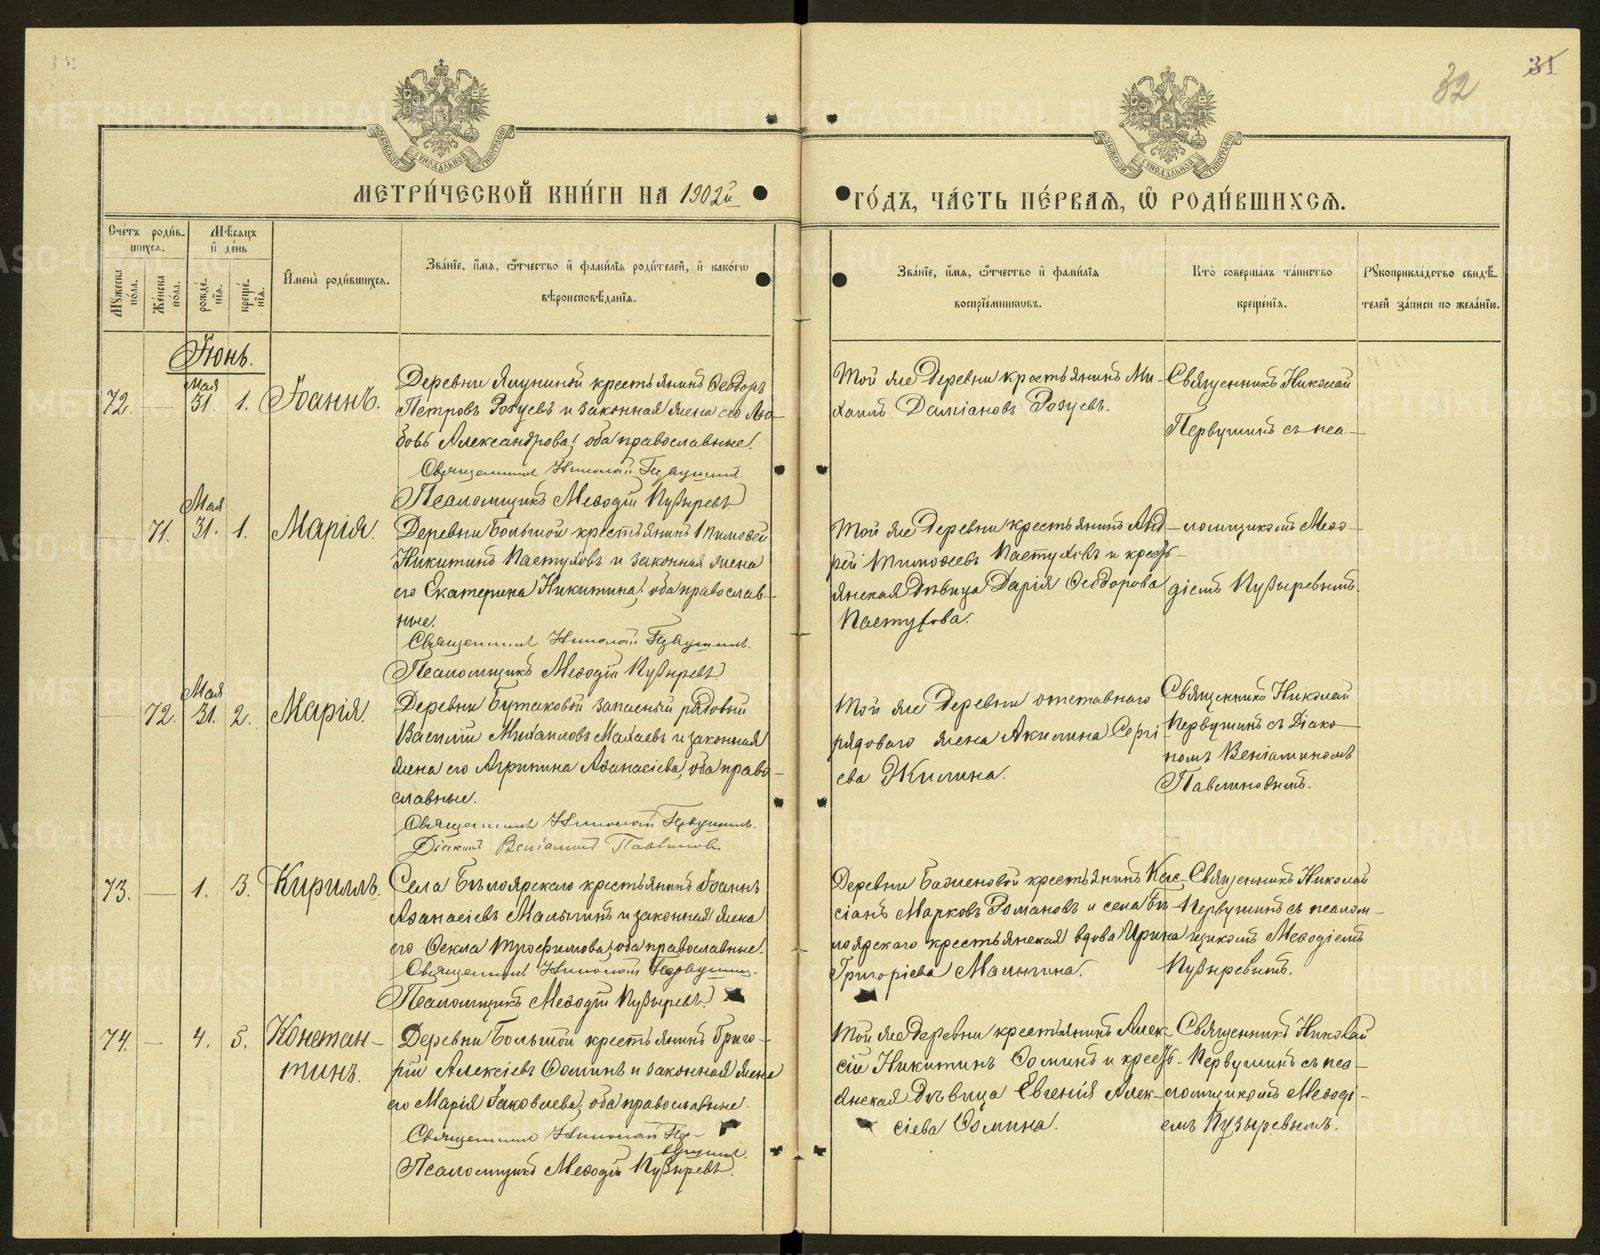 32
31
МОСКОВСКОЙ СѴНОДАЛЬНОЙ ТИПОГРАФІИ
МОСКОВСКОЙ СѴНОДАЛЬНОЙ ТИПОГРАФІИ
МЕТРИ́ЧЕСКОЙ КНИ́ГИ НА 1902й
ГО́ДЪ, ЧА́СТЬ ПЕ́РВАѦ, Ѡ҆ РОДИ́ВШИХСѦ.
Сче́тъ роди́в-
шихсѧ.
Мѣ́сяцъ
и҆ де́нь
Мꙋ́жеска
по́ла.
Же́нска
по́ла.
рожде́-
нїѧ.
креще́-
нїѧ.
И҆мена̀ роди́вшихсѧ.
Зва́нїе, и҆́мѧ, ѻ҆́тчество и҆ фами́лїѧ роди́телей, и҆ како́гѡ
вѣроисповѣ́данїѧ.
Зва́нїе, и҆́мѧ, ѻ҆́тчество и҆ фами́лїѧ
воспрїе́мниковъ.
Кто̀ соверша́лъ та́инство
креще́нїѧ.
Рꙋкоприкла́дство свидѣ́-
телей за́писи по жела́нїю.
Іюнь.
72.
—
Мая
31.
1.
Іоаннъ.
Деревни Ялуниной крестьянинъ Ѳеодоръ
Петровъ Розуевъ и законная жена его Лю-
бовь Александрова; оба православные.
Священникъ Николай Первушинъ
Псаломщикъ Меѳодій Пузыревъ
Той же деревни крестьянинъ Ми-
хаилъ Даміановъ Розуевъ.
Священникъ Николай
Первушинъ съ пса-
71.
Мая
31.
1.
Марія.
Деревни Большой крестьянинъ Тимоѳей
Никитинъ Пастуховъ и законная жена
его Екатерина Никитина; оба православ-
ные.
Священникъ Николай Первушинъ.
Псаломщикъ Меѳодій Пузыревъ
Той же деревни крестьянинъ Анд-
рей Тимоѳеевъ Пастуховъ и кресть-
янская дѣвица Дарія Ѳеодорова
Пастухова.
ломщикомъ Меѳо-
діемъ Пузыревымъ.
72.
Мая
31.
2.
Марія.
Деревни Бутаковой запасный рядовый
Василій Михаиловъ Махаевъ и законная
жена его Агрипина Аѳанасіева; оба право-
славные.
Священникъ Николай Первушинъ.
Діаконъ Веніаминъ Павлиновъ
Той же деревни отставнаго
рядоваго жена Акилина Сергі-
ева Жилина.
Священникъ Николай
Первушинъ съ діако-
номъ Веніаминомъ
Павлиновымъ.
73.
—
1.
3.
Кириллъ.
Села Бѣлоярскаго крестьянинъ Іоаннъ
Аѳанасіевъ Малыгинъ и законная жена
его Ѳекла Трофимова; оба православные.
Священникъ Николай Первушинъ.
Псаломщикъ Меѳодій Пузыревъ.
Деревни Баженовой крестьянинъ Кас-
сіанъ Марковъ Романовъ и села Бѣ-
лоярскаго крестьянская вдова Ирина
Григоріева Малыгина.
Священникъ Николай
Первушинъ съ псалом-
щикомъ Меѳодіемъ
Пузыревымъ.
74.
—
4.
5.
Констан-
тинъ.
Деревни Большой крестьянинъ Григо-
рій Алексіевъ Ѳоминъ и законная жена
его Марія Іаковлева; оба православные.
Священникъ Николай Пер-
вушинъ.
Псаломщикъ Меѳодій Пузыревъ.
Той же деревни крестьянинъ Алек-
сій Никитинъ Ѳоминъ и кресть-
янская дѣвица Евгенія Алек-
сіева Ѳомина.
Священникъ Николай
Первушинъ съ пса-
ломщикомъ Меѳоді-
емъ Пузыревымъ.
METRIKI.GASO-URAL.RU